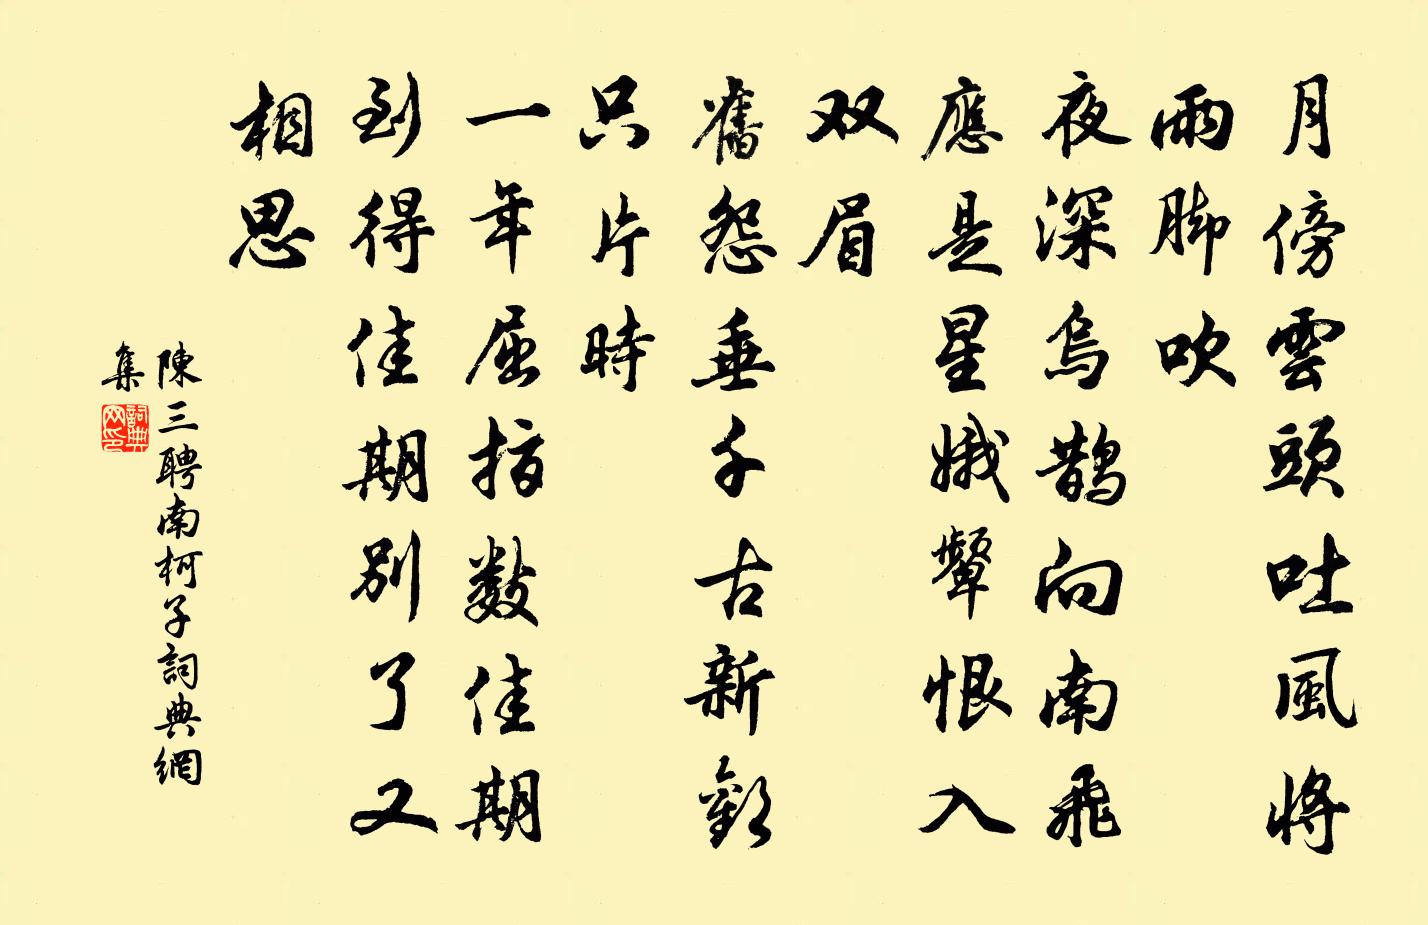 月傍雲頭吐風將
雨脚吹
夜深烏鵲向南飛
應是星娥顰恨入
双眉
舊怨垂千古新歡
只片時
一年屈指數佳期
到得佳期別了又
相思
陳三聘南柯子詞典網
集
詞典
网印